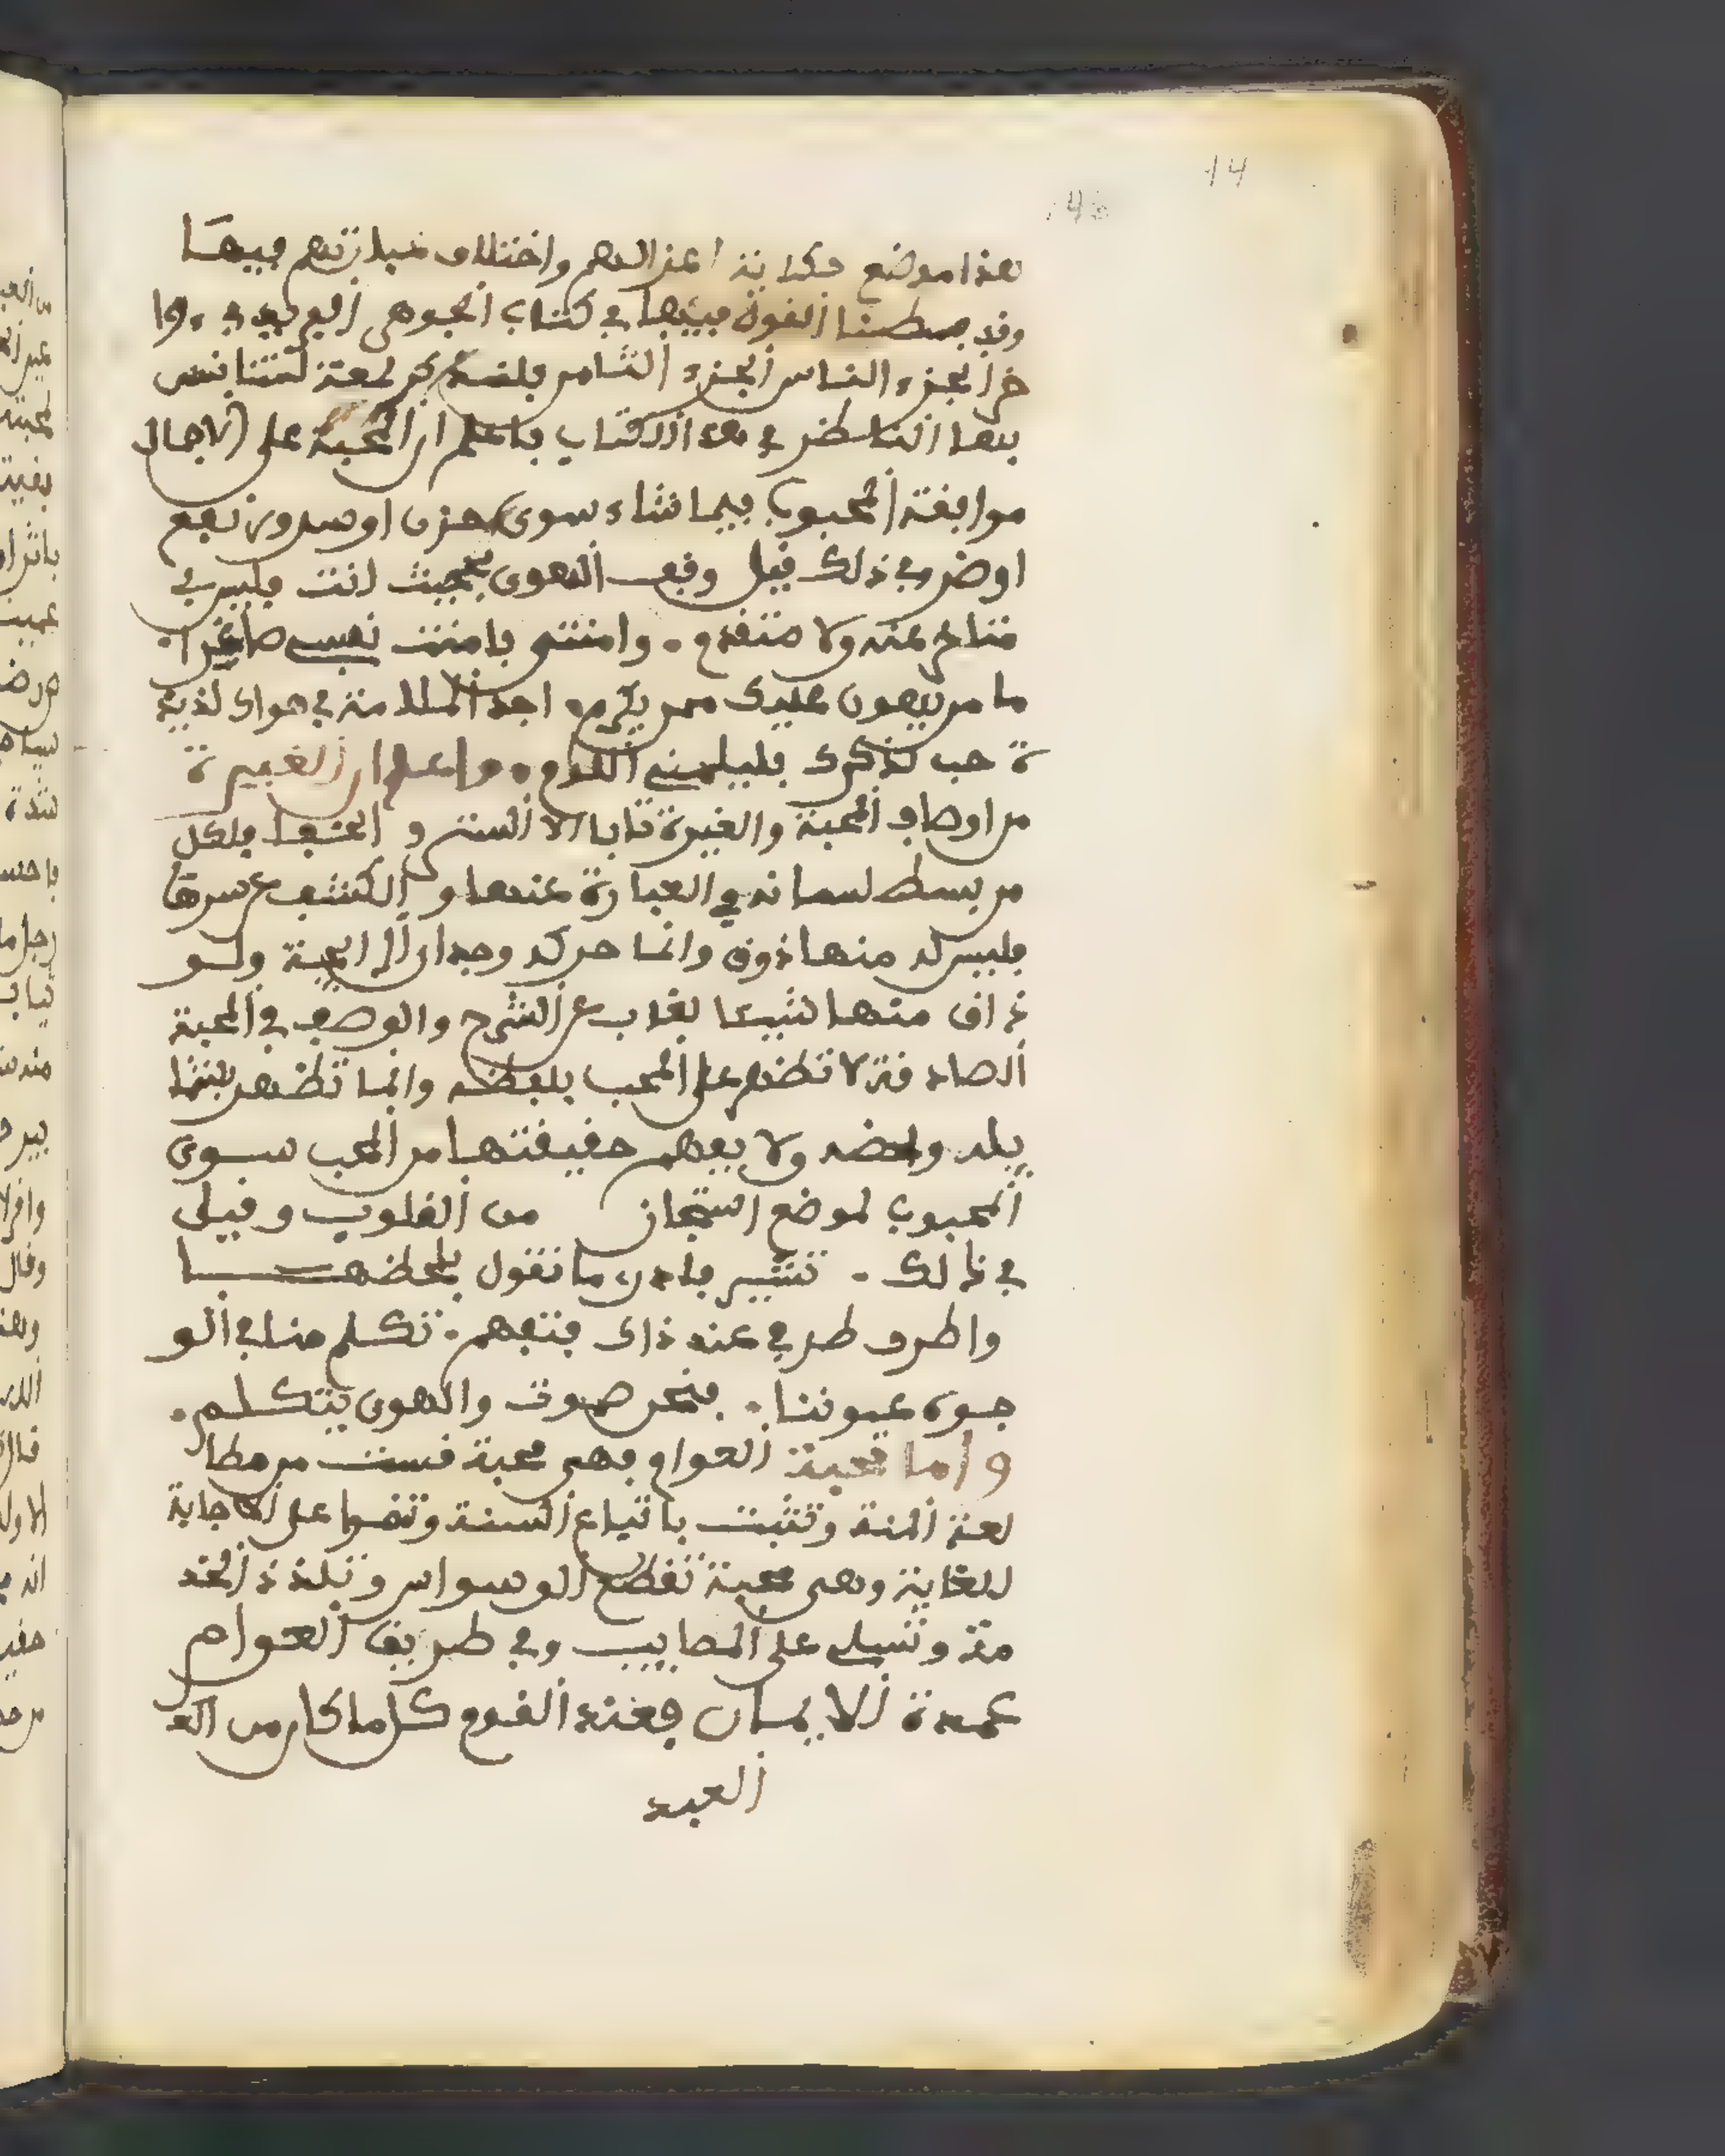 14
هذا موضع حكاية اعزالهم واختلاف عبارتهم فيها
وقد بسطنا القول فيها في كتاب الجوهر الفريد في وا
خر الجزء السا س الجزء الثامن فلنذكر لمعة لتستانس
بها الناظر في هذا الكتاب فاعلم ان المحبة على الاجمال
موافقة المحبوب فيما شاء سوى حزن او سرور نفع
او ضر وفي ذلك قيل وقف الهوى بي حيث انت فليس لي
متاخر عنه ولا متقدم . واهنتني فاهنت نفسي صاغرا .
ما من يهون عليك ممن يكرم . اجد الملامة في هواك لذيذ
ة حب لذكرك فليلمني اللوم . واعلم ان الغيرة
من اوصاف المحبة والغيرة تابا الا الستر و الخفا فلكل
من بسط لسانه في العبارة عنها و الكشف عن سرها
فليس له منها ذوق وانما حركه وجدان الرايحة ولو
ذاق منها شيئا لغاب عن الشرح والوصف فالمحبة
الصادقة لا تظهر على المحب بلفظه وانما تظهر بشما
يله ولحضه ولا يفهم حقيقتها من المحب سوى
المحبوب لموضع امتجاز من القلوب وقيل
في ذالك . تشير فادري ما تقول بلحضها
واطرق طرفي عند ذاك فتفهم . تكلم منا في الو
جوه عيوننا . فنحن صموت والهوى يتكلم .
واما محبة العوام فهي محبة تنبت من مطا
لعة المنة وتثبت باتباع السنة وتنموا على الاجابة
للغاية وهي محبة تقطع الوسواس وتلذذ الخد
مة وتسلي على المصايب وفي طريق العوام
عمدة الايمان فعند القوم كل ما كان من الع
العبد